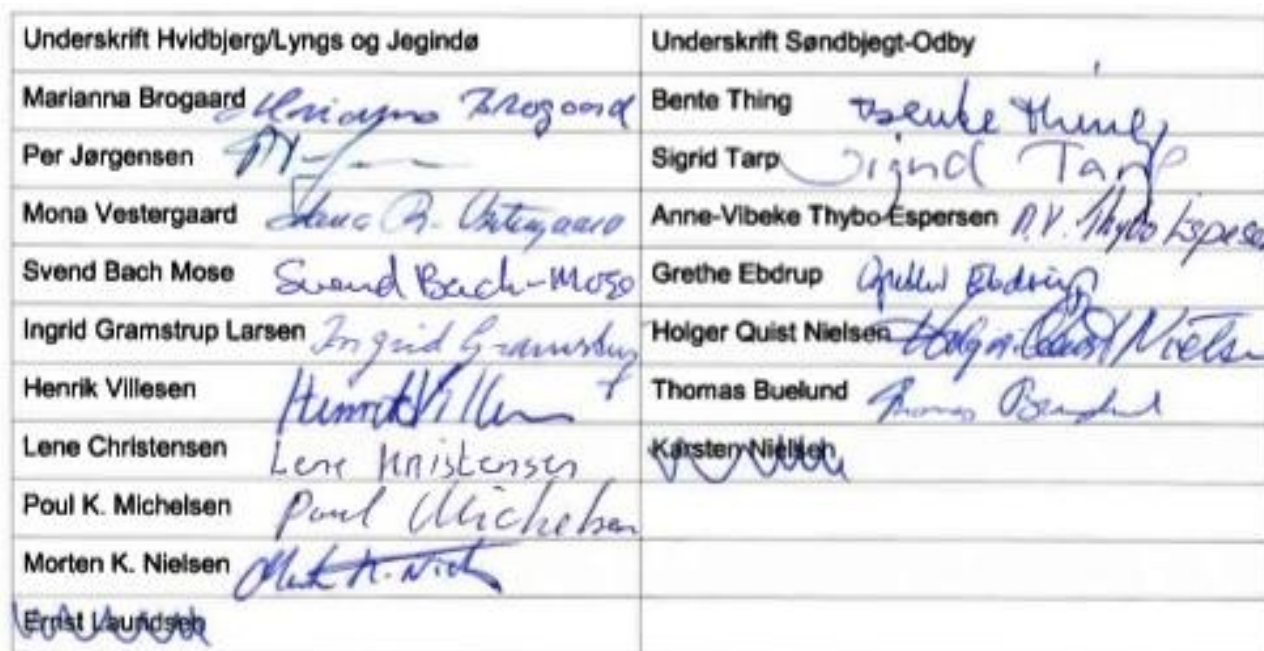 Underskrift Hvidbjerg/Lyngs og Jegindø Underskrift Søndbjegt-Odby
Marianna Brogaard Marianna Brogaard Bente Thing Bente Thing
Per Jørgensen Sigrid Tarp Sigrid Tarp
Mona Vestergaard Mona R. Vestergaard Anne-Vibeke Thybo Espersen A.V. Thybo Espersen
Svend Bach Mose Svend Bach-Mose Grethe Ebdrup Grethe Ebdrup
Ingrid Gramstrup Larsen Ingrid Gramstrup Holger Quist Nielsen Holger Quist Nielsen
Henrik Villesen Henrik Thomas Buelund Thomas Buelund
Lene Christensen Lene Kristensen Karsten Nielsen
Poul K. Michelsen Poul Michelsen
Morten K. Nielsen
Ernst Lauridsen